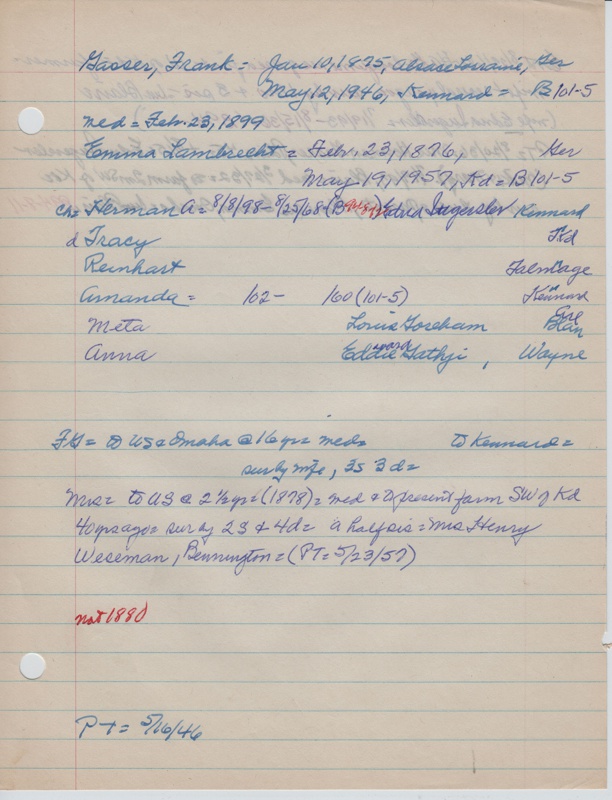 Gasser, Frank = Jan 10, 1875, Alsace Lorraine, Ger
May 12, 1946, Kennard = B 101-5
med = Feb. 23, 1899
Emma Lambrecht = Febr. 23, 1876, Ger
May 19, 1957, Kd = B 101-5
ch = Herman A = 8/8/98 - 8/25/68 (B Edna Ingersler Kennard
d Tracy Kd
Reinhart Talmage
Amanda = 102- 160 (101-5) Kennard
Meta Louis Goreham Blair
Anna Eddie Gathji, Wayne
FG = to US & Omaha @ 16 yr = med = to Kennard =
sur by wife, 3S 3d =
Mrs = to US @ 2 1/2 yr = (1878) = med & to present farm SW of Kd
40 yrs ago = sur by 2S & 4d = a half sis = Mrs Henry
Weseman, Bennington = (PT = 5/23/57)
not 1880
PT = 5/16/46